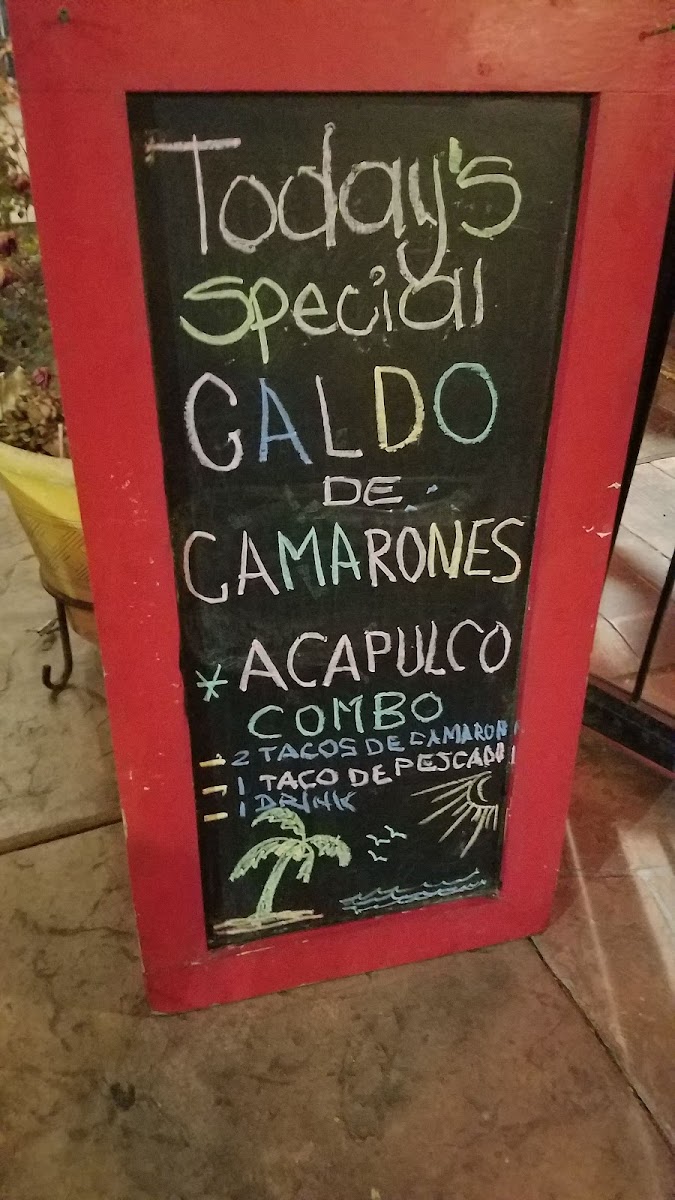 Today's
special
CALDO
DE
CAMARONES
* ACAPULCO
COMBO
- 2 TACOS DE CAMARON
- 1 TACO DE PESCADO
- 1 DRINK